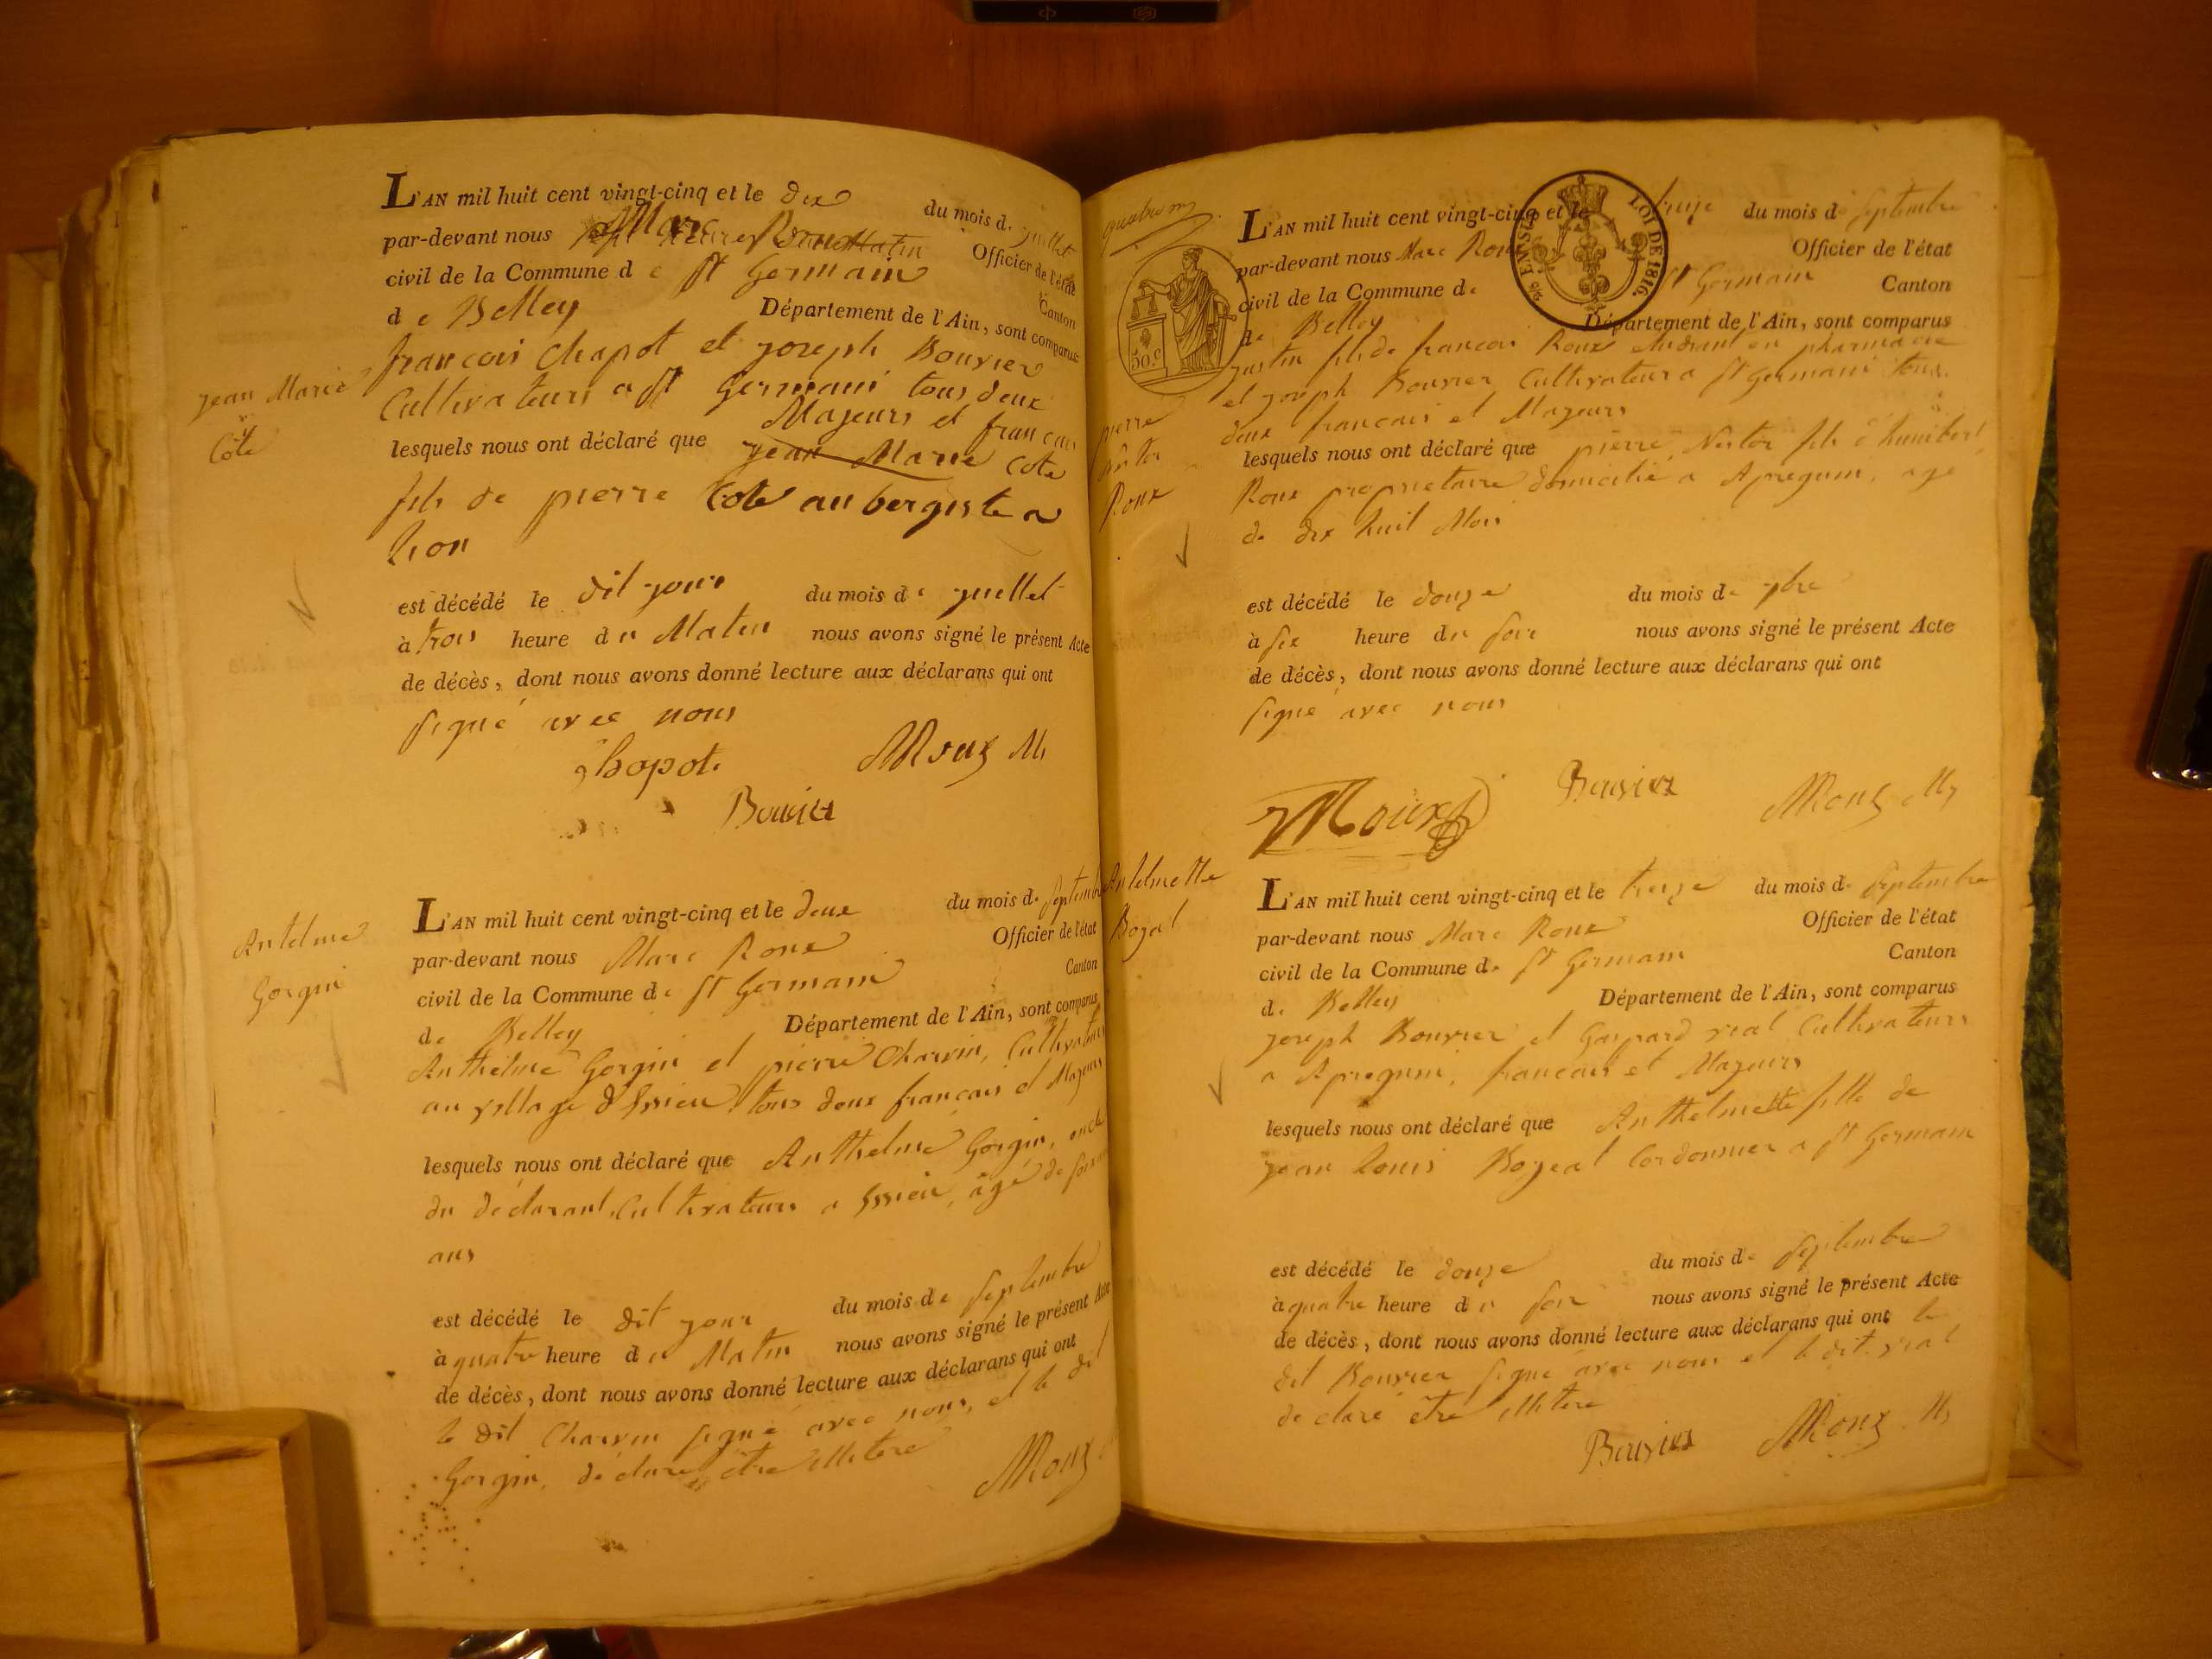 L'AN mil huit cent vingt-cinq et le dix du mois de juillet
par-devant nous Marc Roux Officier de l'état
civil de la Commune de St Germain Canton
de Belley Département de l'Ain, sont comparus
francois Chapot et joseph Bouvier
Cultivateurs a St Germain tous deux
Majeurs et francais
lesquels nous ont déclaré que jean Marie Cote
fils de pierre Cote aubergiste a
Lion
est décédé le dit jour du mois de juillet
à trois heure du Matin nous avons signé le présent Acte
de décès, dont nous avons donné lecture aux déclarans qui ont
signé avec nous
Chapot. MRoux M
Bouvier
jean Marie
Cote
L'AN mil huit cent vingt-cinq et le deux du mois de Septembre
par-devant nous Marc Roux Officier de l'état
civil de la Commune de St Germain Canton
de Belley Département de l'Ain, sont comparus
Anthelme Gorgin et pierre Charvin, Cultivateurs
au village d'Essieu tous deux francais et Majeurs
lesquels nous ont déclaré que Anthelme Gorgin, oncle
du déclarant, Cultivateur a Essieu, âgé de
ans
est décédé le dit jour du mois de Septembre
à quatre heure du Matin nous avons signé le présent Acte
de décès, dont nous avons donné lecture aux déclarans qui ont
le dit Charvin signé avec nous, et le dit
Gorgin, déclaré être illitere
MRoux
Antelme
Gorgin
L'AN mil huit cent vingt-cinq et le treize du mois de Septembre
par-devant nous Marc Roux Officier de l'état
civil de la Commune de St Germain Canton
de Belley Département de l'Ain, sont comparus
justin fils de francois Roux etudiant en pharmacie
et joseph Bouvier Cultivateur a St Germain tous
deux francais et Majeurs
lesquels nous ont déclaré que pierre Nestor fils d'humbert
Roux proprietaire domicilié a Apregnin, agé
de dix huit Mois
est décédé le douze du mois de 7bre
à six heure du soir nous avons signé le présent Acte
de décès, dont nous avons donné lecture aux déclarans qui ont
signé avec nous
Roux Bouvier MRoux M
LOI DE 1816.
50.c
pierre
nestor
Roux
L'AN mil huit cent vingt-cinq et le treize du mois de Septembre
par-devant nous Marc Roux Officier de l'état
civil de la Commune de St Germain Canton
de Belley Département de l'Ain, sont comparus
joseph Bouvier et Gaspard vial Cultivateurs
a Apregnin, francais et Majeurs
lesquels nous ont déclaré que Anthelmette fille de
jean Louis Bogeat Cordonnier a St Germain
est décédé le douze du mois de Septembre
à quatre heure du soir nous avons signé le présent Acte
de décès, dont nous avons donné lecture aux déclarans qui ont le
dit Bouvier signé avec nous et le dit vial
declaré etre illitere
Bouvier MRoux M
Antelmette
Bogat